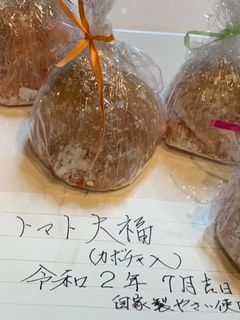 トマト大福
(カボチャ入)
令和2年7月吉日
自家製やさい使用